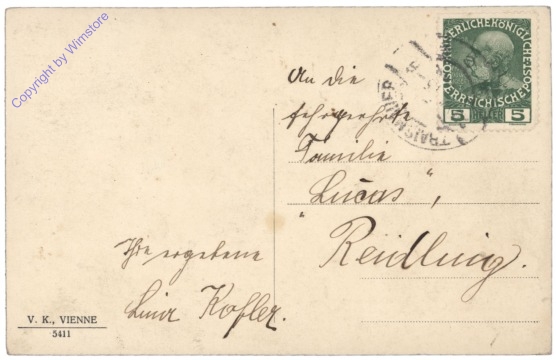 Copyright by Wimstore
KAISERLICHE KÖNIGLICHE
ÖSTERREICHISCHE POST
5 HELLER 5
TRAISMAUER
An die
sehr geehrte
Familie
"Lucas",
Reidling.
Ihre ergebene
Lina Kofler.
V. K., VIENNE
5411